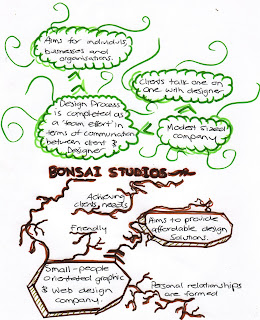 Aims for individuals,
businesses and
organisations.
Clients talk one on
one with designer
Design Process
is completed as
a team effort in
terms of communication
between client &
Designer
Modest sized
company
BONSAI STUDIOS
Achieving
clients needs
Friendly
Aims to provide
affordable design
Solutions.
Small-people
orientated graphic
& Web design
company.
Personal relationships
are formed